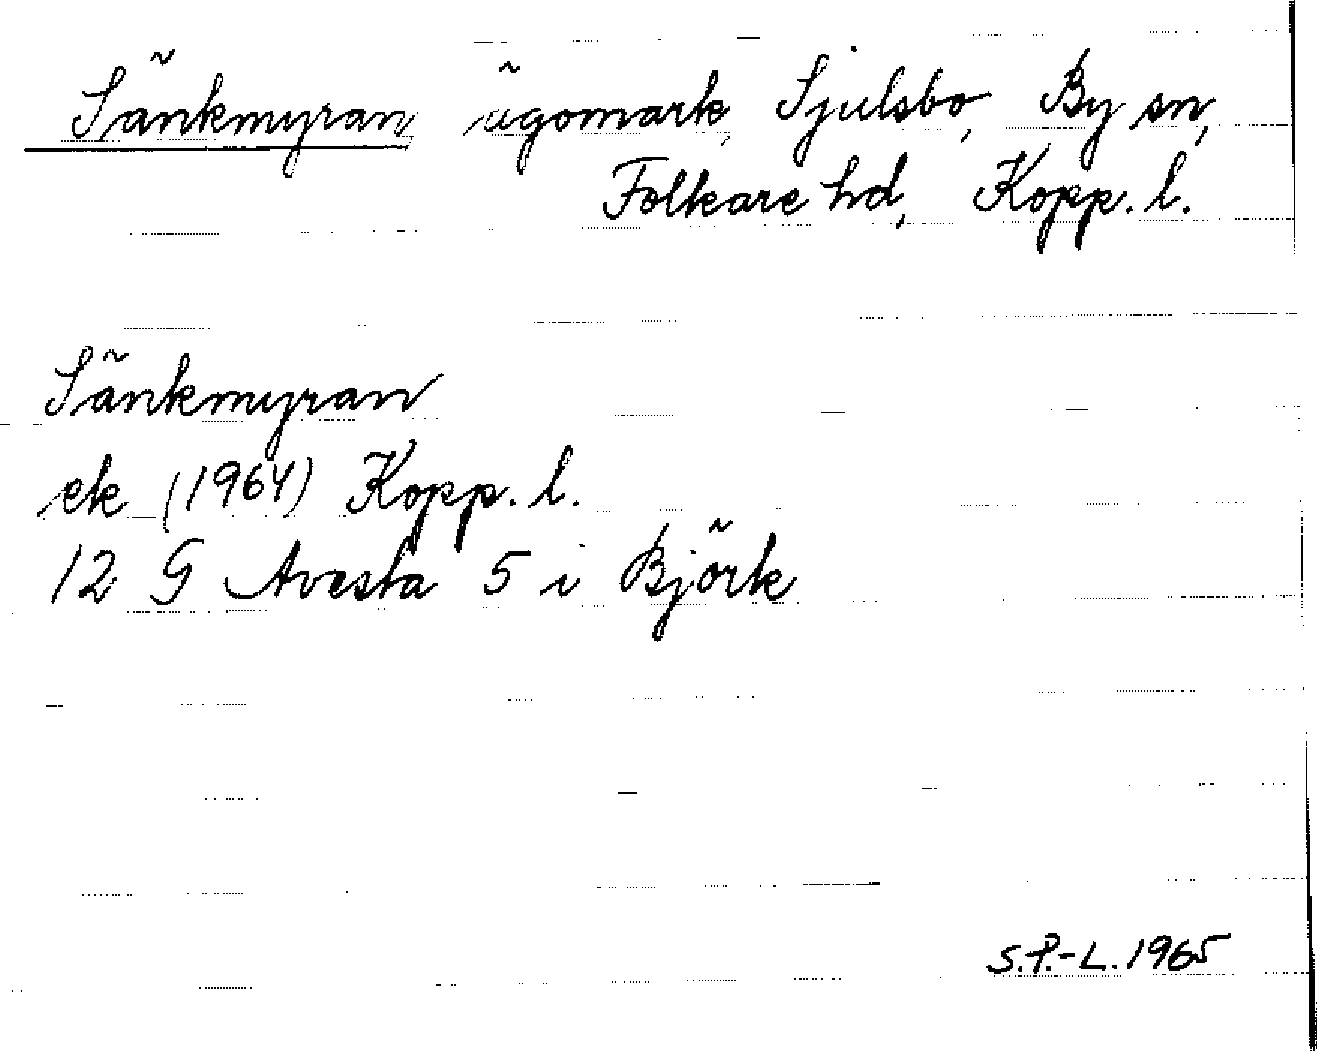 Sänkmyran, ägomark, Sjulsbo, By sn,
Folkare hd, Kopp. l.
Sänkmyran
ek (1964) Kopp. l.
12 G Avesta 5 i Björk
S.P.-L. 1965